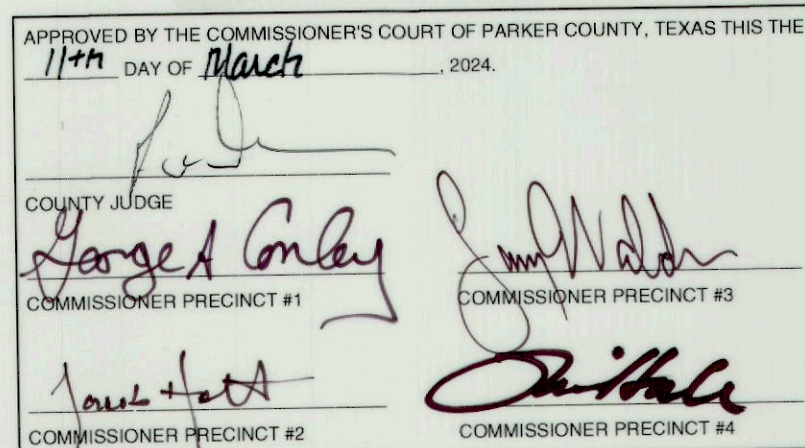 APPROVED BY THE COMMISSIONER'S COURT OF PARKER COUNTY, TEXAS THIS THE
11th DAY OF March, 2024.
COUNTY JUDGE
George A Conley
COMMISSIONER PRECINCT #1
COMMISSIONER PRECINCT #3
COMMISSIONER PRECINCT #2
COMMISSIONER PRECINCT #4